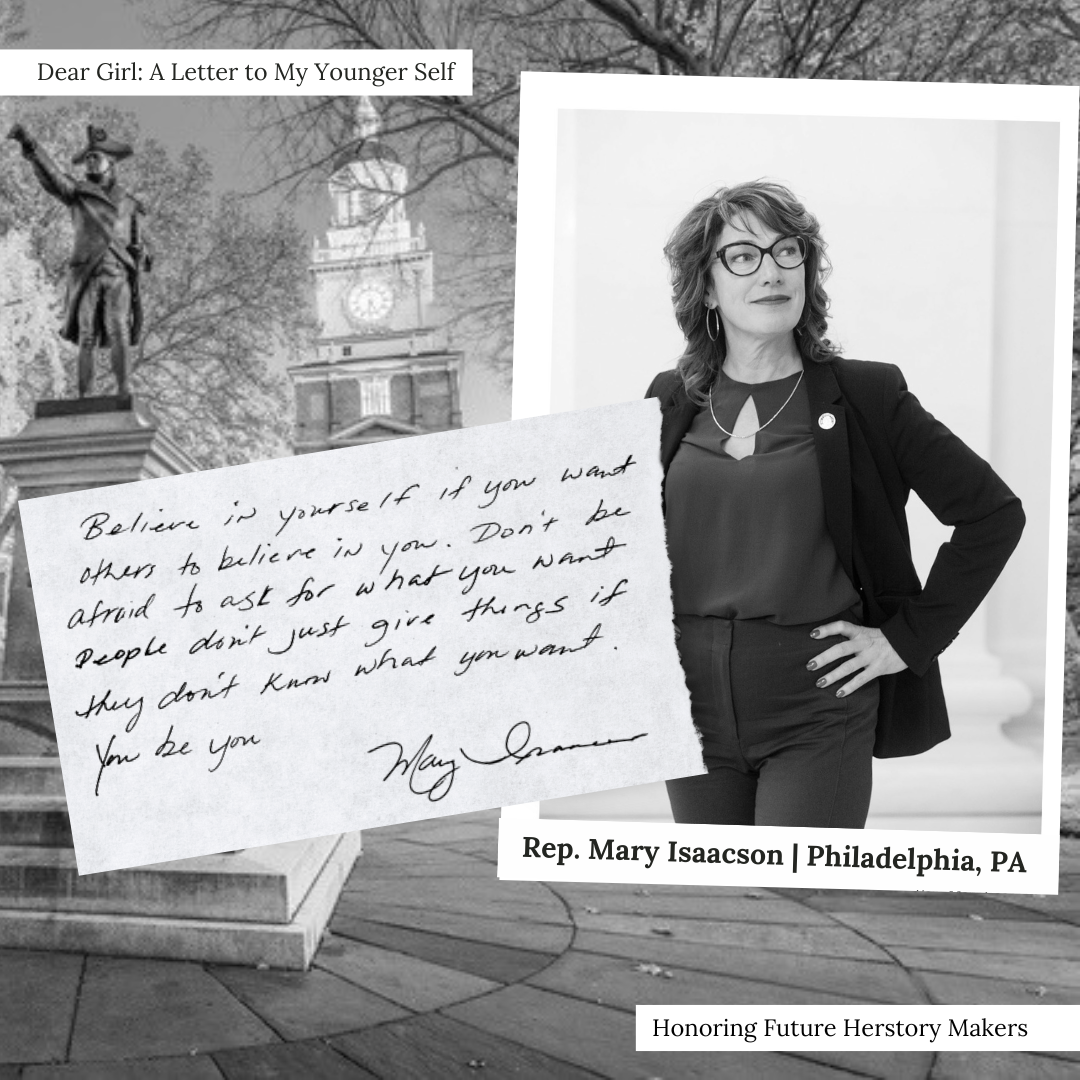 Dear Girl: A Letter to My Younger Self
Believe in yourself if you want
others to believe in you. Don't be
afraid to ask for what you want
People don't just give things if
they don't know what you want.
You be you
Mary Isaacson
Rep. Mary Isaacson | Philadelphia, PA
Honoring Future Herstory Makers